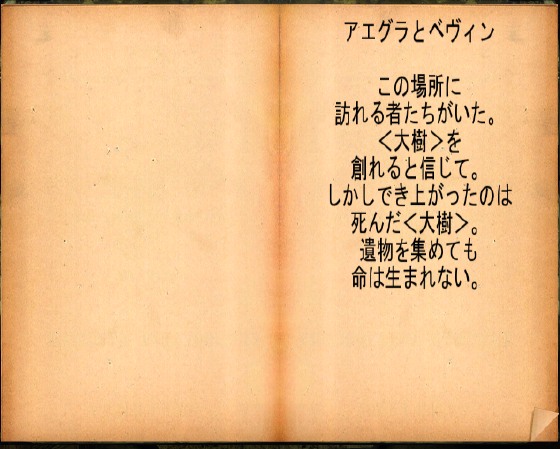 アエグラとベヴィン
この場所に
訪れる者たちがいた。
＜大樹＞を
創れると信じて。
しかしでき上がったのは
死んだ＜大樹＞。
遺物を集めても
命は生まれない。